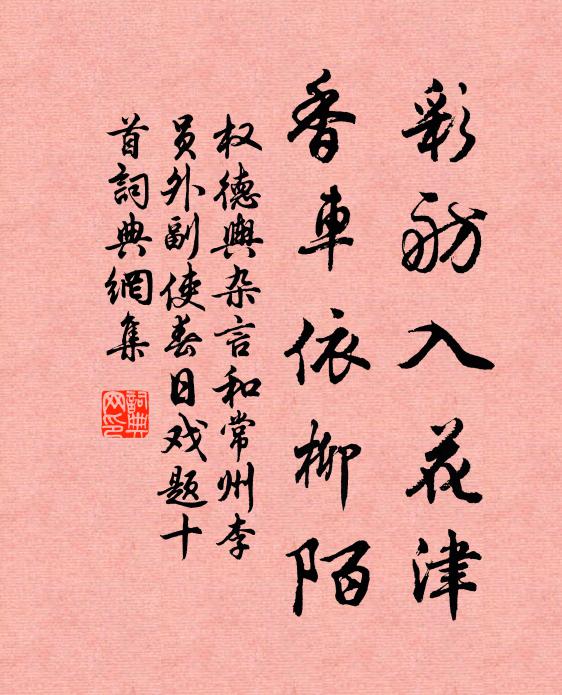 彩舫入花津
香車依柳陌
权德輿杂言和常州李
員外副使春日戏题十
首詞典網集
詞典
网印